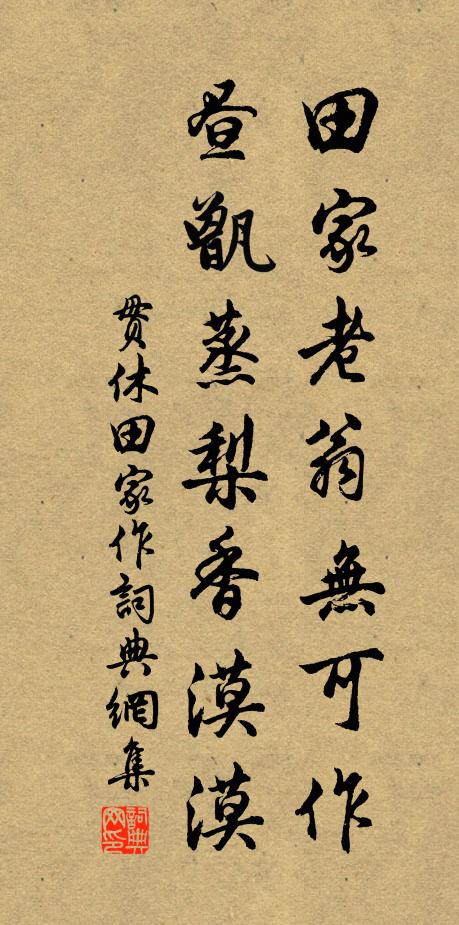 田家老翁無可作
昼甑蒸梨香漠漠
貫休田家作詞典網集
詞典网印